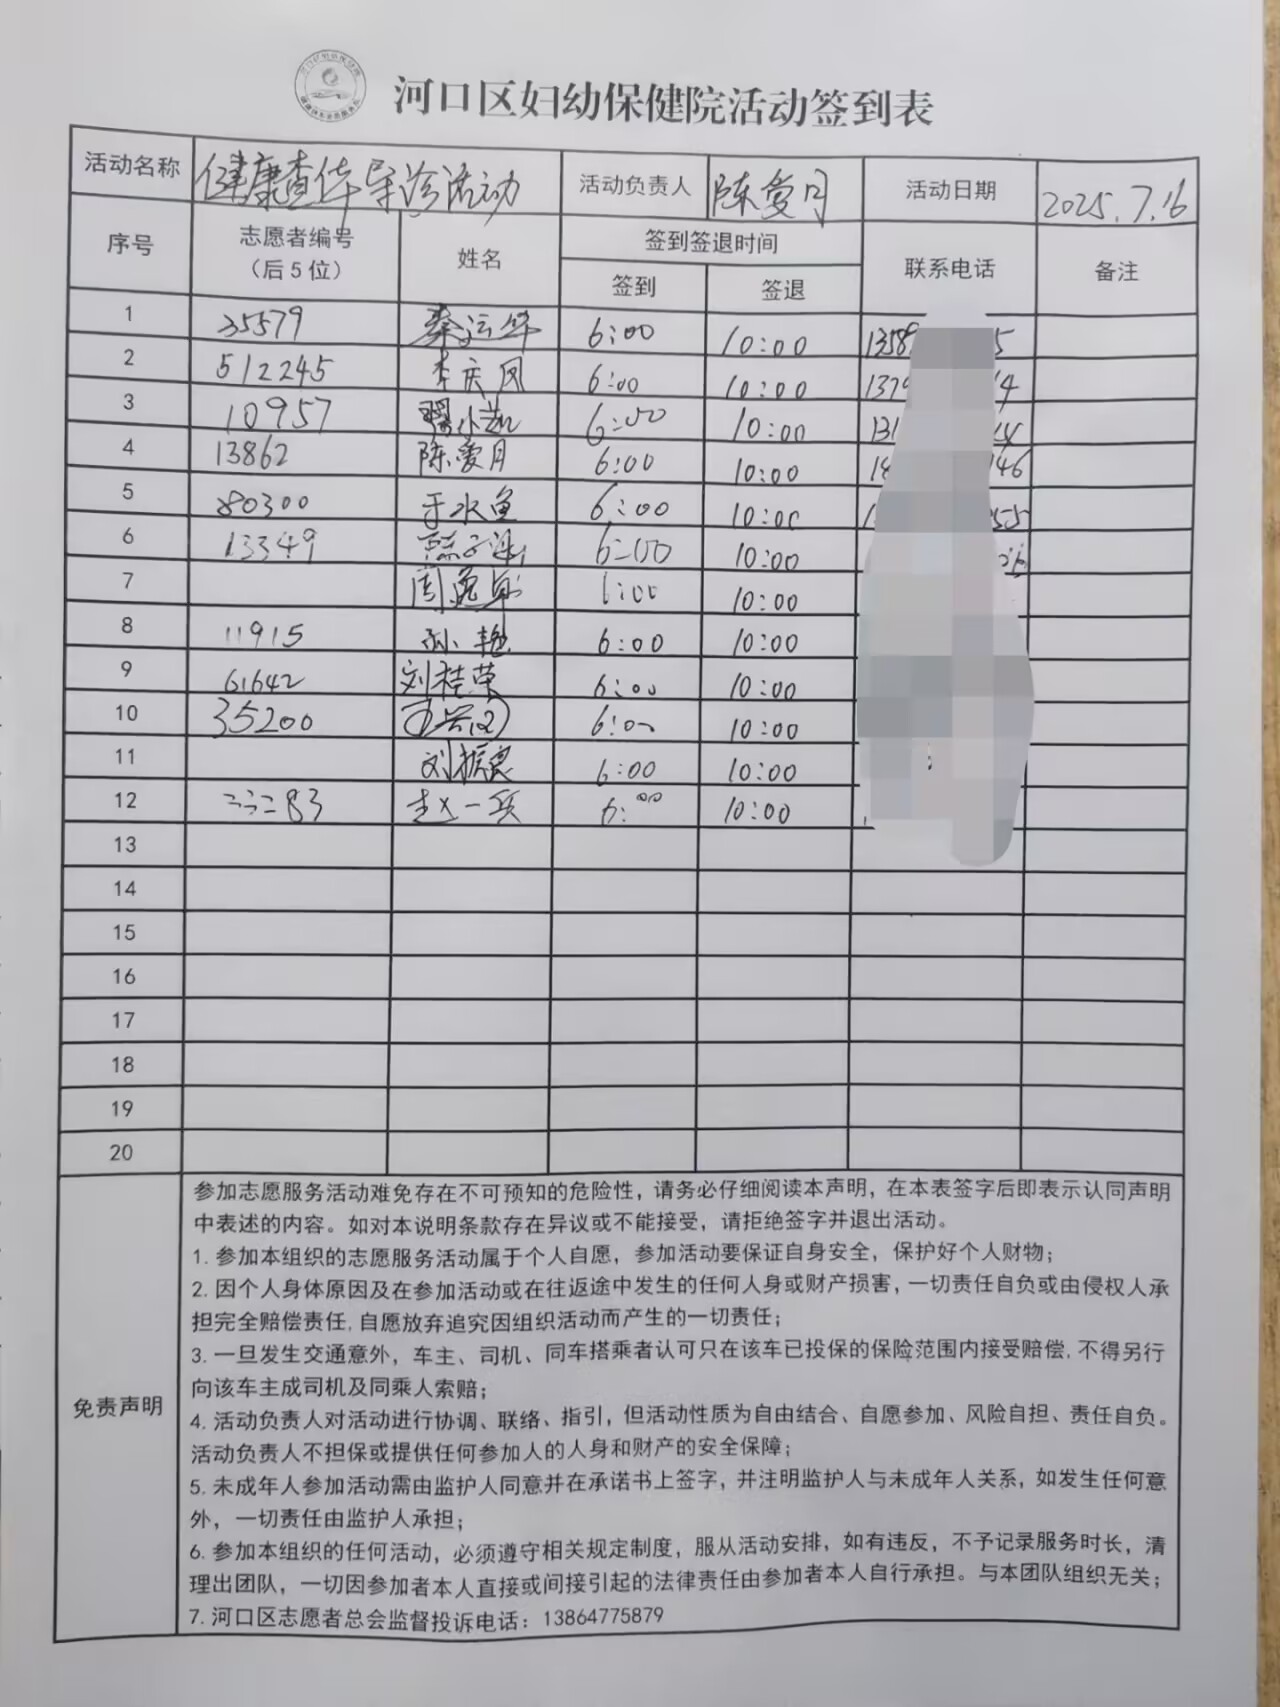 河口区妇幼保健院活动签到表
活动名称 健康查体导诊活动 活动负责人 陈爱月 活动日期 2025.7.16
序号 志愿者编号（后5位） 姓名 签到签退时间 联系电话 备注
签到 签退
1 35579 秦运华 6:00 10:00 1358 5
2 512245 李庆风 6:00 10:00 137 4
3 10957 6:00 10:00 131
4 13862 陈爱月 6:00 10:00 1 146
5 80300 于水鱼 6:00 10:00 1 55
6 13349 6:00 10:00
7 周 6:00 10:00
8 11915 孙艳 6:00 10:00
9 61642 刘桂荣 6:00 10:00
10 35200 王 6:00 10:00
11 刘振良 6:00 10:00
12 83 赵一 6:00 10:00
13
14
15
16
17
18
19
20
免责声明
参加志愿服务活动难免存在不可预知的危险性，请务必仔细阅读本声明，在本表签字后即表示认同声明
中表述的内容。如对本说明条款存在异议或不能接受，请拒绝签字并退出活动。
1. 参加本组织的志愿服务活动属于个人自愿，参加活动要保证自身安全，保护好个人财物；
2. 因个人身体原因及在参加活动或在往返途中发生的任何人身或财产损害，一切责任自负或由侵权人承
担完全赔偿责任，自愿放弃追究因组织活动而产生的一切责任；
3. 一旦发生交通意外，车主、司机、同车搭乘者认可只在该车已投保的保险范围内接受赔偿，不得另行
向该车主成司机及同乘人索赔；
4. 活动负责人对活动进行协调、联络、指引，但活动性质为自由结合、自愿参加、风险自担、责任自负。
活动负责人不担保或提供任何参加人的人身和财产的安全保障；
5. 未成年人参加活动需由监护人同意并在承诺书上签字，并注明监护人与未成年人关系，如发生任何意
外，一切责任由监护人承担；
6. 参加本组织的任何活动，必须遵守相关规定制度，服从活动安排，如有违反，不予记录服务时长，清
理出团队，一切因参加者本人直接或间接引起的法律责任由参加者本人自行承担。与本团队组织无关；
7. 河口区志愿者总会监督投诉电话：13864775879